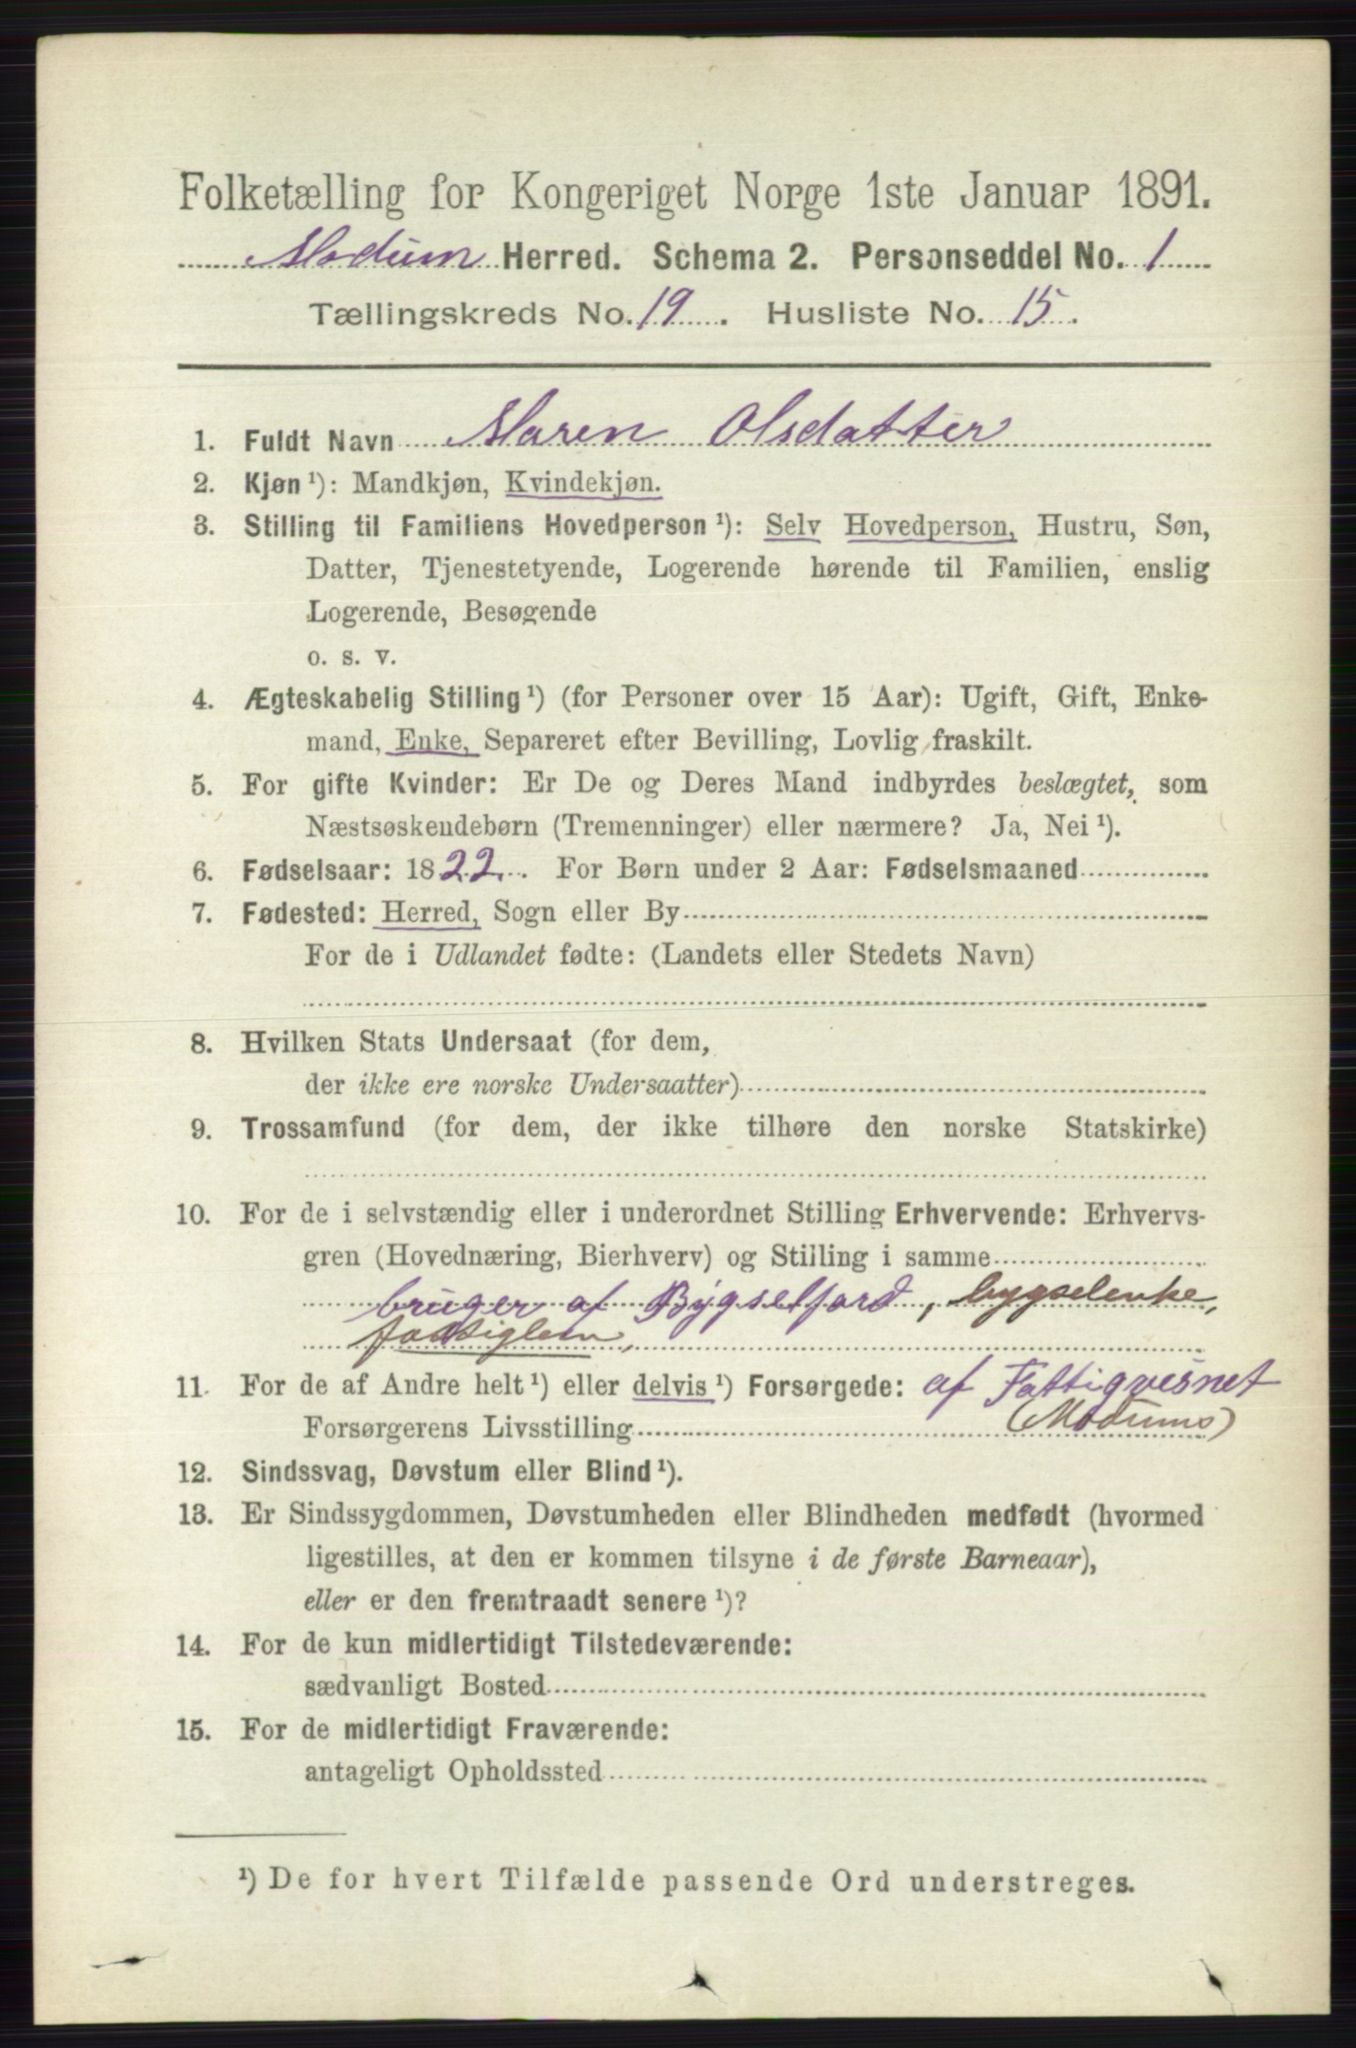 Folketælling for Kongeriget Norge 1ste Januar 1891.
Modum Herred. Schema 2. Personseddel No. 1
Tællingskreds No. 19. Husliste No. 15.
1. Fuldt Navn Maren Olsdatter
2. Kjøn ¹): Mandkjøn, Kvindekjøn.
3. Stilling til Familiens Hovedperson ¹): Selv Hovedperson, Hustru, Søn,
Datter, Tjenestetyende, Logerende hørende til Familien, enslig
Logerende, Besøgende
o. s. v.
4. Ægteskabelig Stilling ¹) (for Personer over 15 Aar): Ugift, Gift, Enke-
mand, Enke, Separeret efter Bevilling, Lovlig fraskilt.
5. For gifte Kvinder: Er De og Deres Mand indbyrdes beslægtet, som
Næstsøskendebørn (Tremenninger) eller nærmere? Ja, Nei ¹).
6. Fødselsaar: 1822. For Børn under 2 Aar: Fødselsmaaned
7. Fødested: Herred, Sogn eller By
For de i Udlandet fødte: (Landets eller Stedets Navn)
8. Hvilken Stats Undersaat (for dem,
der ikke ere norske Undersaatter)
9. Trossamfund (for dem, der ikke tilhøre den norske Statskirke)
10. For de i selvstændig eller i underordnet Stilling Erhvervende: Erhvervs-
gren (Hovednæring, Bierhverv) og Stilling i samme
bruger af Bygselfard, bygselenke,
fattiglem,
11. For de af Andre helt ¹) eller delvis ¹) Forsørgede: af Fattigvesnet
Forsørgerens Livsstilling (Modums)
12. Sindssvag, Døvstum eller Blind ¹).
13. Er Sindssygdommen, Døvstumheden eller Blindheden medfødt (hvormed
ligestilles, at den er kommen tilsyne i de første Barneaar),
eller er den fremtraadt senere ¹)?
14. For de kun midlertidigt Tilstedeværende:
sædvanligt Bosted
15. For de midlertidigt Fraværende:
antageligt Opholdssted
¹) De for hvert Tilfælde passende Ord understreges.